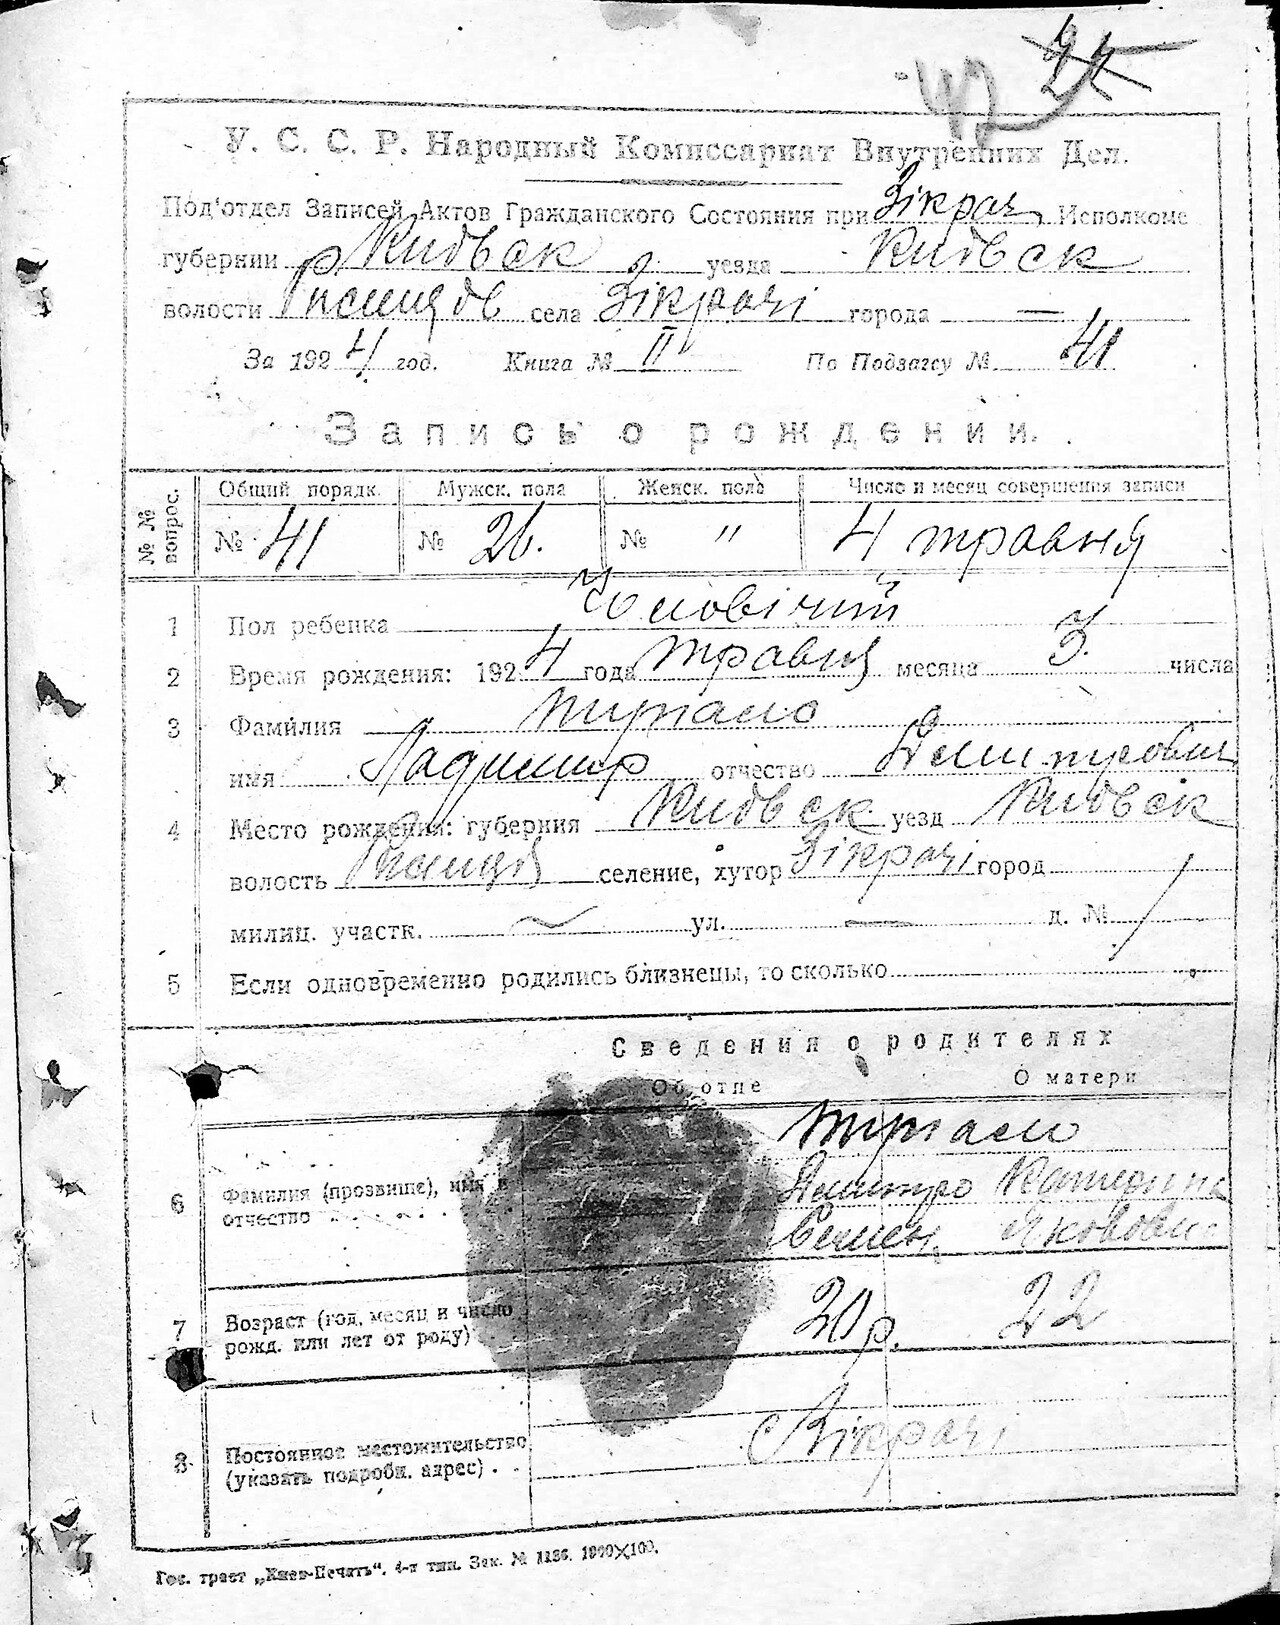 42 24
У. С. С. Р. Народный Комиссариат Внутренних Дел.
Под'отдел Записей Актов Гражданского Состояния при Зікрач. Исполкоме
губернии Київск уезда Київск
волости села Зікрачі города —
За 1924 год. Книга № II По Подзагсу № 41
Запись о рождении.
№ № вопрос. Общий порядк. Мужск. пола Женск. пола Число и месяц совершения записи
№ 41 № 26. № " 4 травня
1 Пол ребенка Чоловічий
2 Время рождения: 1924 года травня месяца 3. числа
3 Фамилия
имя Ладимир отчество Дмитрович
4 Место рождения: губерния Київск уезд Київск
волость селение, хутор Зікрачі город
милиц. участк. — ул. — д. №
5 Если одновременно родились близнецы, то сколько
Сведения о родителях
Об отце О матери
6 Фамилия (прозвище), имя и отчество
Дмитро Катерина
Семен. Якововна
7 Возраст (год, месяц и число рожд. или лет от роду) 20 р. 22
8 Постоянное местожительство (указать подробн. адрес) . с Зікрачі
Гос. трест „Киев-Печать“. 4-я тип. Зак. № 1136. 1000×100.